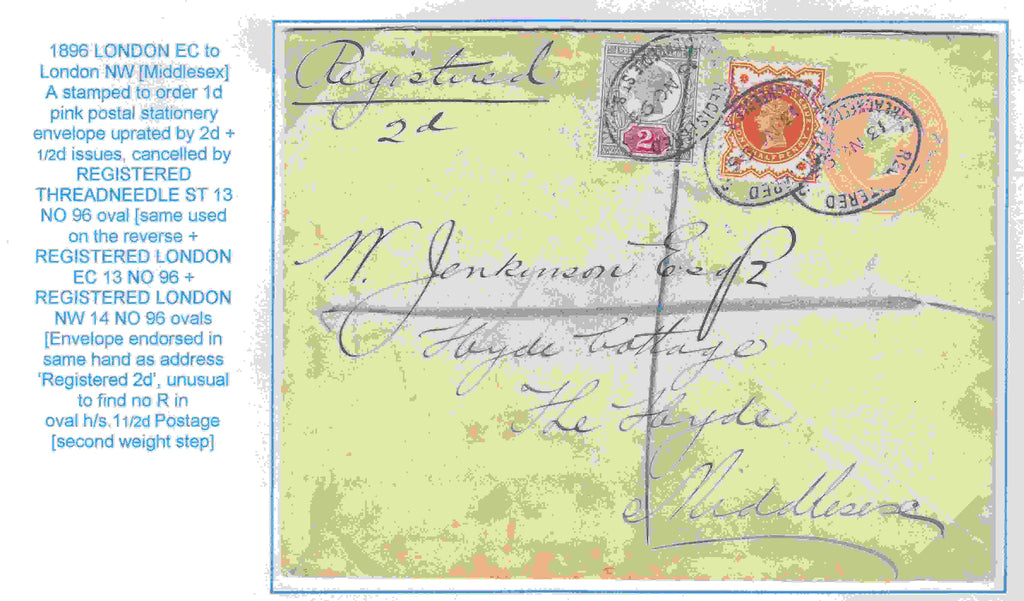 1896 LONDON EC to
London NW [Middlesex]
A stamped to order 1d
pink postal stationery
envelope uprated by 2d +
1/2d issues, cancelled by
REGISTERED
THREADNEEDLE ST 13
NO 96 oval [same used
on the reverse +
REGISTERED LONDON
EC 13 NO 96 +
REGISTERED LONDON
NW 14 NO 96 ovals
[Envelope endorsed in
same hand as address
'Registered 2d', unusual
to find no R in
oval h/s.11/2d Postage
[second weight step]
Registered
2d
2d
HALFPENNY
REGISTERED
13 NO
W. Jenkinson Esqr
Hyde Cottage
The Hyde
Middlesex